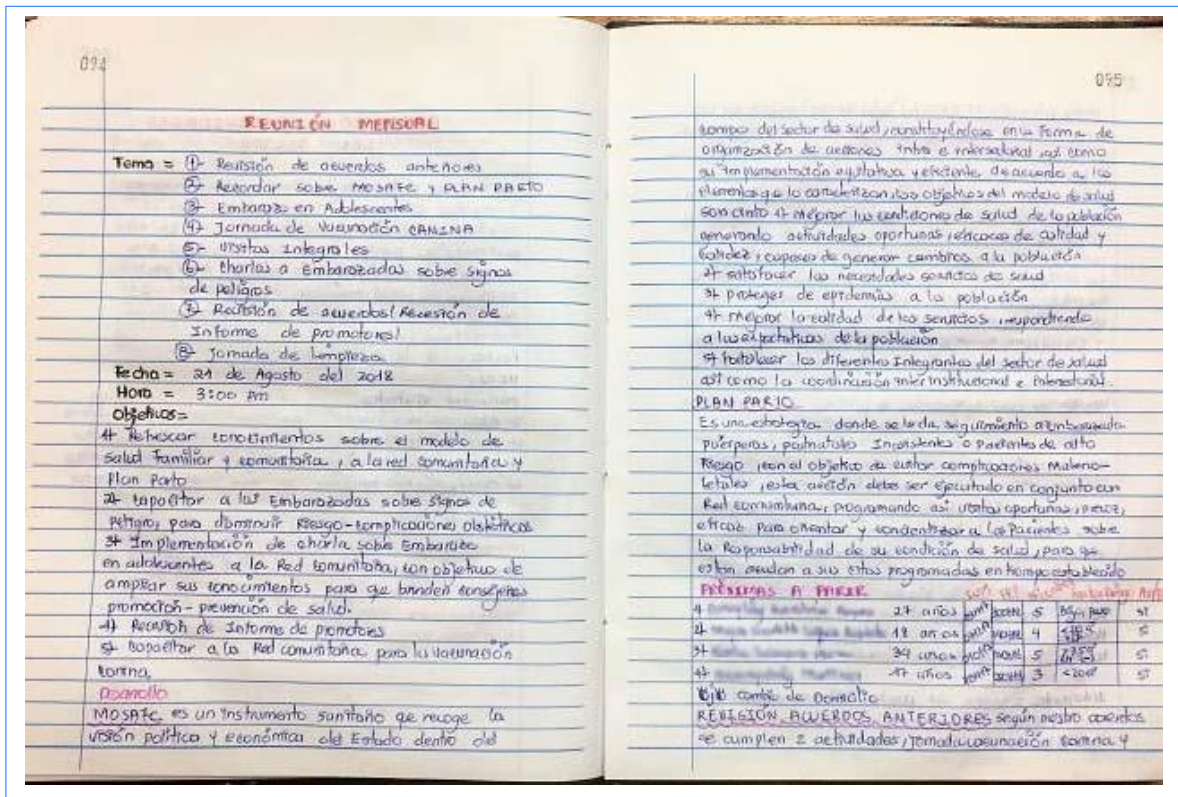 094
REUNIÓN MENSUAL
Tema = 1) Revisión de acuerdos anteriores
2) Recordar sobre MOSAFC y PLAN PARTO
3) Embarazo en Adolescentes
4) Jornada de Vacunación CANINA
5) Visitas Integrales
6) Charlas a Embarazadas sobre Signos
de peligros
7) Revisión de acuerdos / Recesión de
Informe de promotores /
8) Jornada de limpieza
Fecha = 21 de Agosto del 2018
Hora = 3:00 pm
Objetivos =
1) Refrescar conocimientos sobre el modelo de
Salud Familiar y comunitaria, a la red comunitaria y
Plan Parto
2) Capacitar a las Embarazadas sobre Signos de
Peligro, para disminuir Riesgo-complicaciones obstétricas
3) Implementación de charla sobre Embarazo
en adolescentes a la Red comunitaria, con objetivo de
ampliar sus conocimientos para que brinden consejería
promoción-prevención de salud.
4) Recesión de Informe de promotores
5) Capacitar a la Red comunitaria para la vacunación
canina,
Desarrollo
MOSAFC, es un instrumento sanitario que recoge la
visión política y económica del Estado dentro del
095
campo del sector de salud, constituyéndose en la forma de
organización de acciones intra e intersectorial así como
su implementación equitativa y eficiente de acuerdo a los
elementos q lo caracterizan, los objetivos del modelo de salud
son cinto 1) Mejorar las condiciones de salud de la población
generando actividades oportunas, eficaces de calidad y
calidez, capaces de generar cambios a la población
2) satisfacer las necesidades servicios de salud
3) proteger de epidemias a la población
4) Mejorar la calidad de los servicios, respondiendo
a las expectativas de la población
5) Fortalecer los diferentes Integrantes del sector de salud
así como la coordinación interinstitucional e intersectorial.
PLAN PARTO
Es una estrategia donde se le da seguimiento a embarazada
puérperas, postnatales Inasistentes o Pacientes de alto
Riesgo, con el objetivo de evitar complicaciones Materno-
fetales, esta acción debe ser ejecutado en conjunto con
Red comunitaria, programando así visitas oportuna,
eficaz para orientar y concientizar a las Pacientes sobre
la Responsabilidad de su condición de salud, para q
estan acudan a sus citas programadas en tiempo establecido
PRÓXIMAS A PARIR
1) 27 años 5 si
2) 18 años 4 si
3) 34 años 5 si
4) 17 años 3 si
cambio de Domicilio
REVISIÓN ACUERDOS ANTERIORES según nuestro acuerdos
se cumplen 2 actividades, jornada vacunación canina y